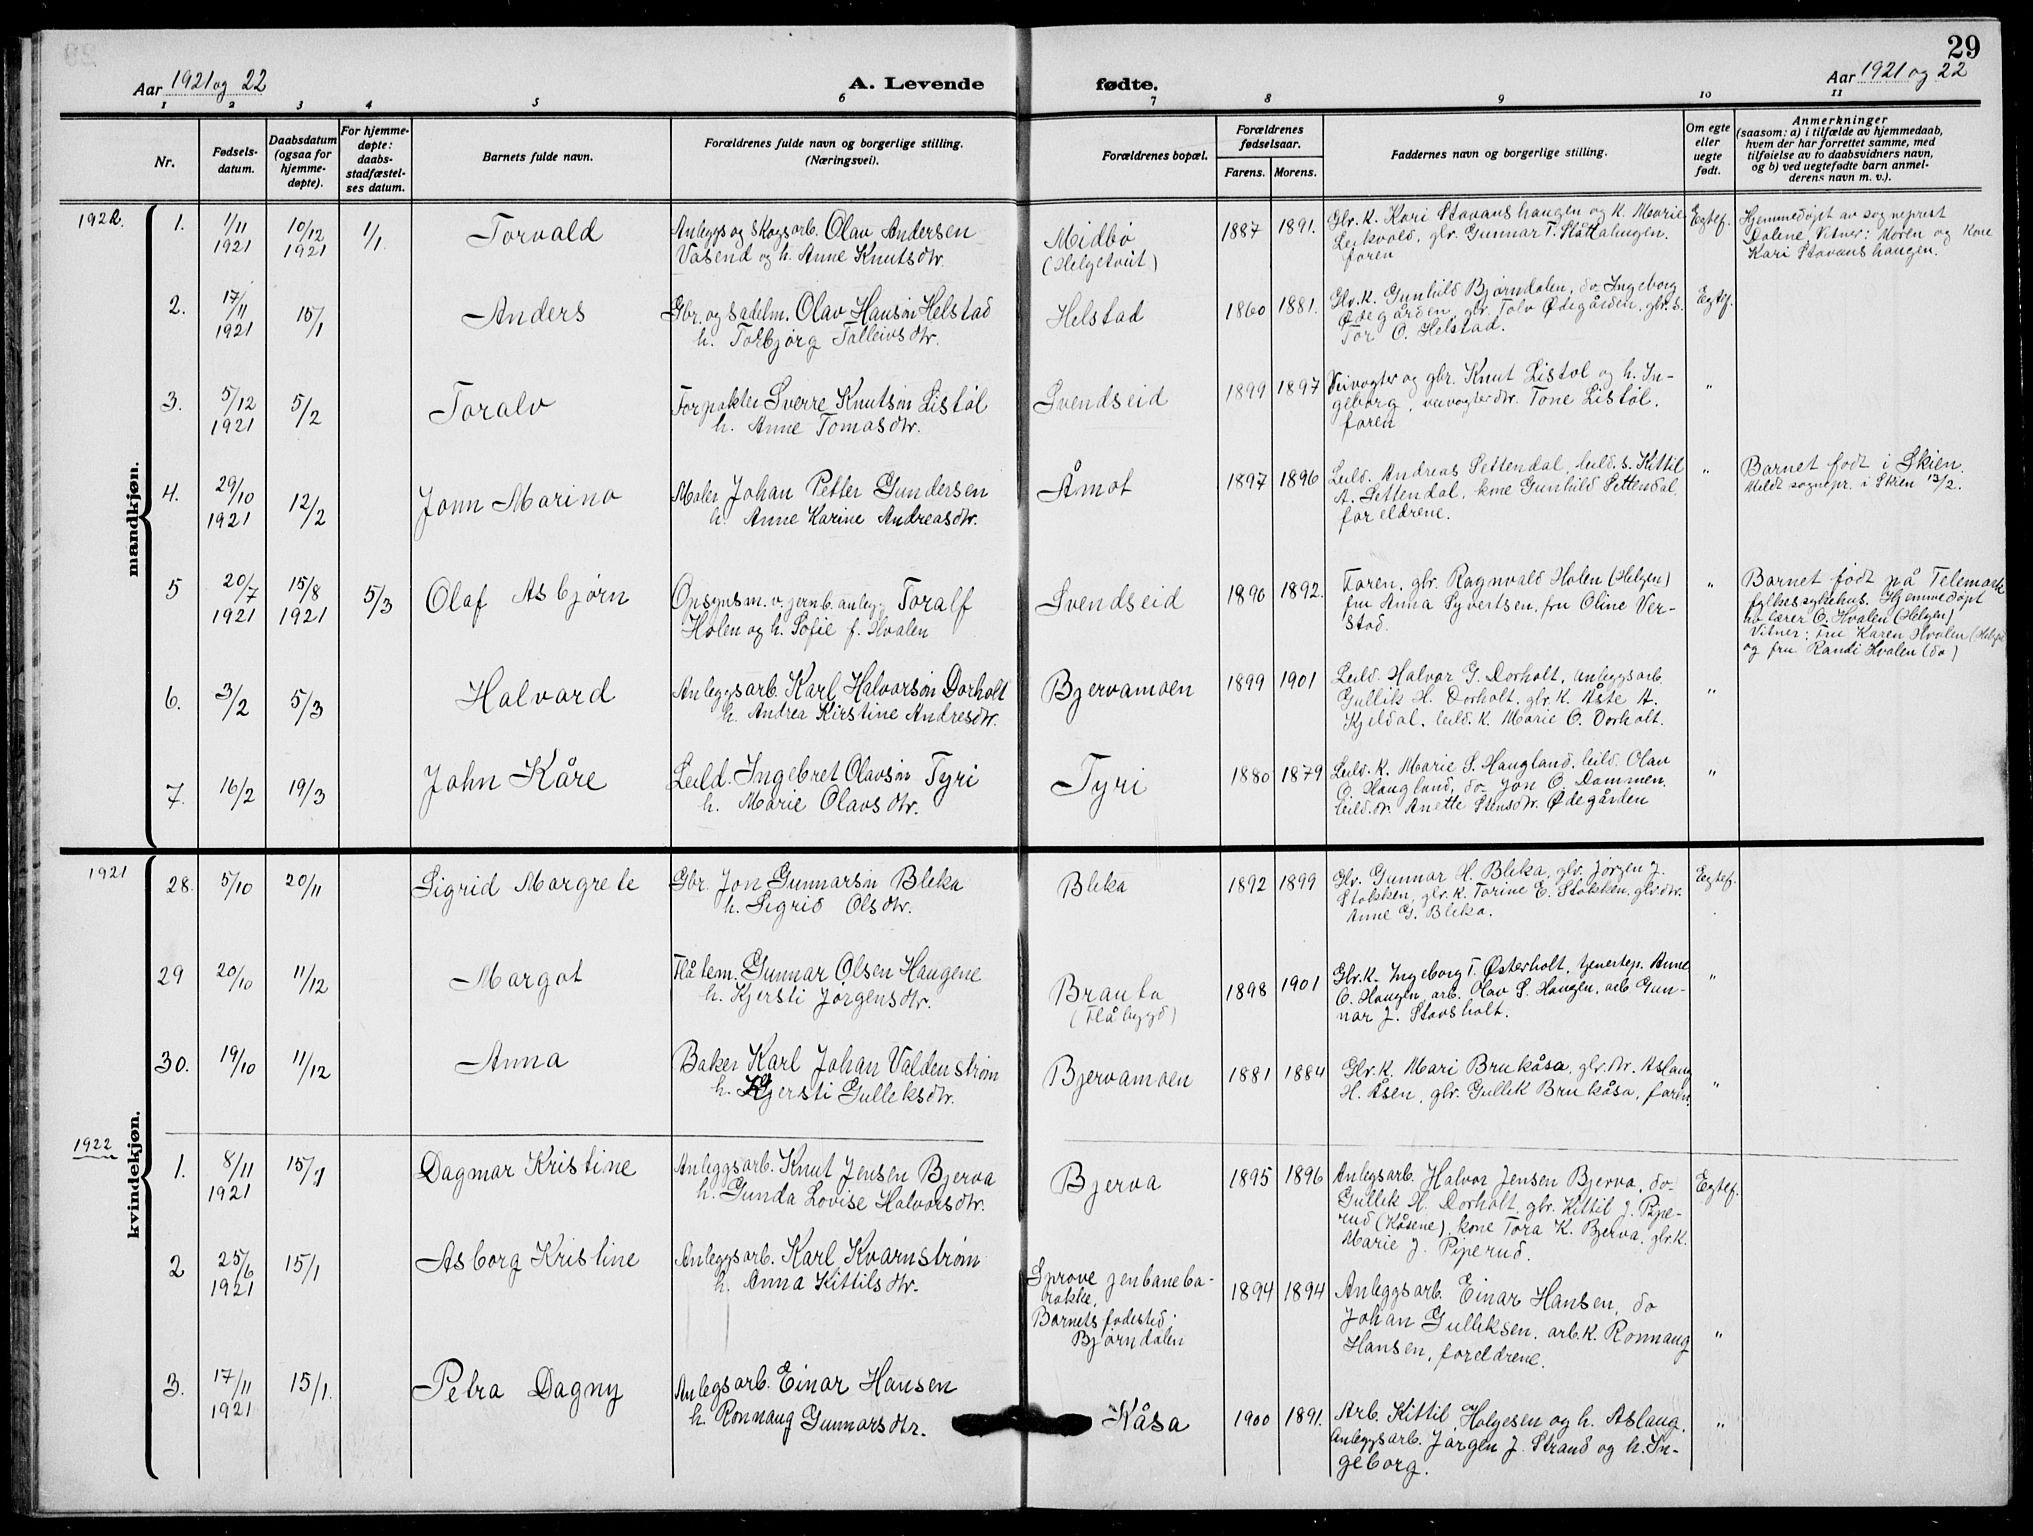 29
Aar 1921 og 22
A. Levende
fødte.
Aar 1921 og 22
1 2 3 4 5 6 7 8 9 10 11
Nr.
Fødsels-
datum.
Daabsdatum
(ogsaa for
hjemme-
døpte).
For hjemme-
døpte:
daabs-
stadfæstel-
ses datum.
Barnets fulde navn.
Forældrenes fulde navn og borgerlige stilling.
(Næringsvei).
Forældrenes bopæl.
Forældrenes
fødselsaar.
Farens. Morens.
Faddernes navn og borgerlige stilling.
Om egte
eller
uegte
født.
Anmerkninger
(saasom: a) i tilfælde av hjemmedaab,
hvem der har forrettet samme, med
tilføielse av to daabsvidners navn,
og b) ved uegtefødte barn anmel-
derens navn m. v.).
mandkjøn.
1922.
1.
1/11
1921
10/12
1921
1/1.
Torvald
Anleggs og skogsarb. Olav Andersen
Vasend og h. Anne Knutsdtr.
Midbø
(Helgetveit)
1887
1891.
Gbr. k. Kari Stavanshaugen og k. Marie
Leikvold, gbr. Gunnar T. Slåttahaugen.
faren
Egtef.
Hjemmedøpt av sogneprest
Dalene. Vitner: Moren og kone
Kari Stavanshaugen.
2.
17/11
1921
15/1
Anders
Gbr. og sadelm. Olav Hansøn Helstad
h. Torbjørg Tolleivsdtr.
Helstad
1860
1881.
Gbr. k. Gunhild Bjørndalen, do Ingeborg
Ødegården, gbr. Tolv Ødegården, gbr. s.
Tor O. Helstad.
Egtef.
3.
5/12
1921
5/2
Toralv
Forpakter Sverre Knutsøn Listøl
h. Anne Tomasdtr.
Svendseid
1899
1897
Veivogter og gbr. Knut Listøl og h. In-
geborg, veivogterdtr. Tone Listøl.
faren
"
4.
29/10
1921
12/2
Jonn Marino
Maler Johan Petter Gundersen
h. Anne Karine Andreasdtr.
Åmot
1897
1896
Leild. Andreas Settendal, leild. s. Kittil
A. Settendal, kone Gunhild Settendal,
foreldrene.
"
Barnet født i Skien.
Meldt sognepr. i Skien 13/2.
5
20/7
1921
15/8
1921
5/3
Olaf Asbjørn
Opsynsm. v. jernb. anlegg Toralf
Holen og h. Sofie f. Hvalen
Svendseid
1890
1892.
Faren, gbr. Ragnvald Holen (Helgen)
fru Anna Syvertsen, fru Oline Ver-
stad.
"
Barnet født på Telemark
fylkessykehus. Hjemmedøpt
av lærer O. Hvalen (Helgen)
Vitner: Fru Karen Hvalen (Helgen)
og fru Randi Hvalen (do)
6.
3/2
5/3
Halvard
Anleggsarb. Karl Halvorsøn Dorholt
h. Andrea Kirstine Andresdtr.
Bjervamoen
1899
1901
Leild. Halvor G. Dorholt, anleggsarb.
Gullik H. Dorholt, gbr. k. Åste A.
Kjeldal, leild. k. Marie O. Dorholt.
"
7.
16/2
19/3
John Kåre
Leild. Ingebret Olavsøn Tyri
h. Marie Olavsdtr.
Tyri
1880
1879
Leild. k. Marie S. Haugland, leild. Olav
O. Haugland, do Jon O. Dammen.
leild. dtr. Anette Stensdtr. Ødegården
"
kvindekjøn.
1921
28.
5/10
20/11
Sigrid Margrete
Gbr. Jon Gunnarsøn Bleka
h. Sigrid Olsdtr.
Bleka
1892
1899
Gbr. Gunnar H. Bleka, gbr. Jørgen J.
Stokken, gbr. k. Torine E. Stokken, gbr. dtr.
Anne G. Bleka.
Egtef.
29
20/10
11/12
Margot
Flåtem. Gunnar Olsen Haugene
h. Kjersti Jørgensdtr.
Brauta
(Flåbygd)
1898
1901
Gbr. k. Ingeborg T. Østerholt, tjenestep. Anne
O. Haugen, arb. Olav S. Haugen, arb Gun-
nar J. Stavsholt.
"
30.
19/10
11/12
Anna
Baker Karl Johan Valdenstrøm
h. Kjersti Gulleksdtr.
Bjervamoen
1881
1884
Gbr. k. Mari Brukåsa, gbr. dtr. Aslaug
H. Åsen, gbr. Gullik Brukåsa, faren.
"
1922
1.
8/11
1921
15/1
Dagmar Kristine
Anleggsarb. Knut Jensen Bjerva
h. Gunda Lovise Halvorsdtr.
Bjerva
1895
1896
Anlegsarb. Halvor Jensen Bjerva, do-
Gullik H. Dorholt, gbr. Kittil J. Pipe-
rud (Kåsene), kone Tora K. Bjerva, gbr. k.
Marie J. Piperud.
Egtef.
2
25/6
1921
15/1
Asborg Kristine
Anleggsarb. Karl Kvarnstrøm
h. Anna Kittilsdtr.
Sprove jenbaneba-
rakke.
Barnets fødested:
Bjørndalen
1894
1894
Anleggsarb. Einar Hansen, do
Johan Gulliksen, arb. k. Ronnaug
Hansen, foreldrene.
"
3.
17/11
1921
15/1.
Petra Dagny
Anlegsarb. Einar Hansen
h. Ronnaug Gunnarsdtr.
Kåsa
1900
1891.
Arb. Kittil Helgesen og h. Aslaug.
Anleggsarb. Jørgen J. Strand og h. In-
geborg.
"